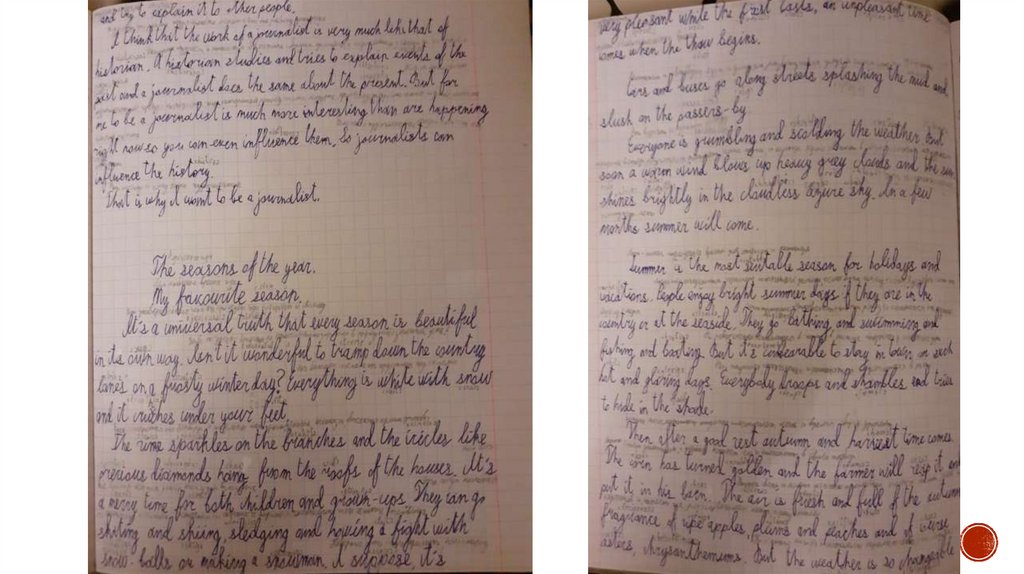 and try to explain it to other people.
I think that the work of a journalist is very much like that of
historian. A historian studies and tries to explain events of the
past and a journalist does the same about the present. But for
me to be a journalist is much more interesting than are happening
right now so you can even influence them. So journalists can
influence the history.
That is why I want to be a journalist.
The seasons of the year.
My favourite season.
It's a universal truth that every season is beautiful
in its own way. Isn't it wonderful to tramp down the country
lanes on a frosty winter day? Everything is white with snow
and it crushes under your feet.
The rime sparkles on the branches and the icicles like
precious diamonds hang from the roofs of the houses. It's
a merry time for both children and grown-ups. They can go
skating and skiing, sledging and having a fight with
snow-balls or making a snowman, I suppose, it's
very pleasant while the frost lasts, an unpleasant time
comes when the thow begins.
Cars and buses go along streets splashing the mud and
slush on the passers-by
Everyone is grumbling and scolding the weather But
soon a warm wind blows up heavy grey clouds and the sun
shines brightly in the cloudless azure sky. In a few
months summer will come.
Summer is the most suitable season for holidays and
vacations. People enjoy bright summer days if they are in the
country or at the seaside. They go bathing, and swimming and
fishing and boating. But it's unbearable to stay in town on such
hot and glaring days. Everybody droops and shambles and tries
to hide in the shade.
Then after a good rest autumn and harvest time comes.
The corn has turned golden and the farmer will reap it and
put it in his barn. The air is fresh and full of the autumn
fragrance of ripe apples, plums and peaches and of
asters, chrysanthemums. But the weather is so changeable